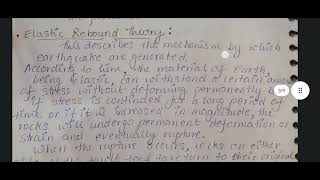 • Elastic Rebound Theory:
This describes the mechanism by which
earthquake are generated.
According to him, the material of Earth,
being elastic, can withstand a certain amount
of stress without deforming permanently b
if stress is continued for a long period of
time or if it is increased in magnitude, the
rocks will undergo permanent deformation or
strain and eventually rupture.
When the rupture occurs, rocks on either
to return to their original